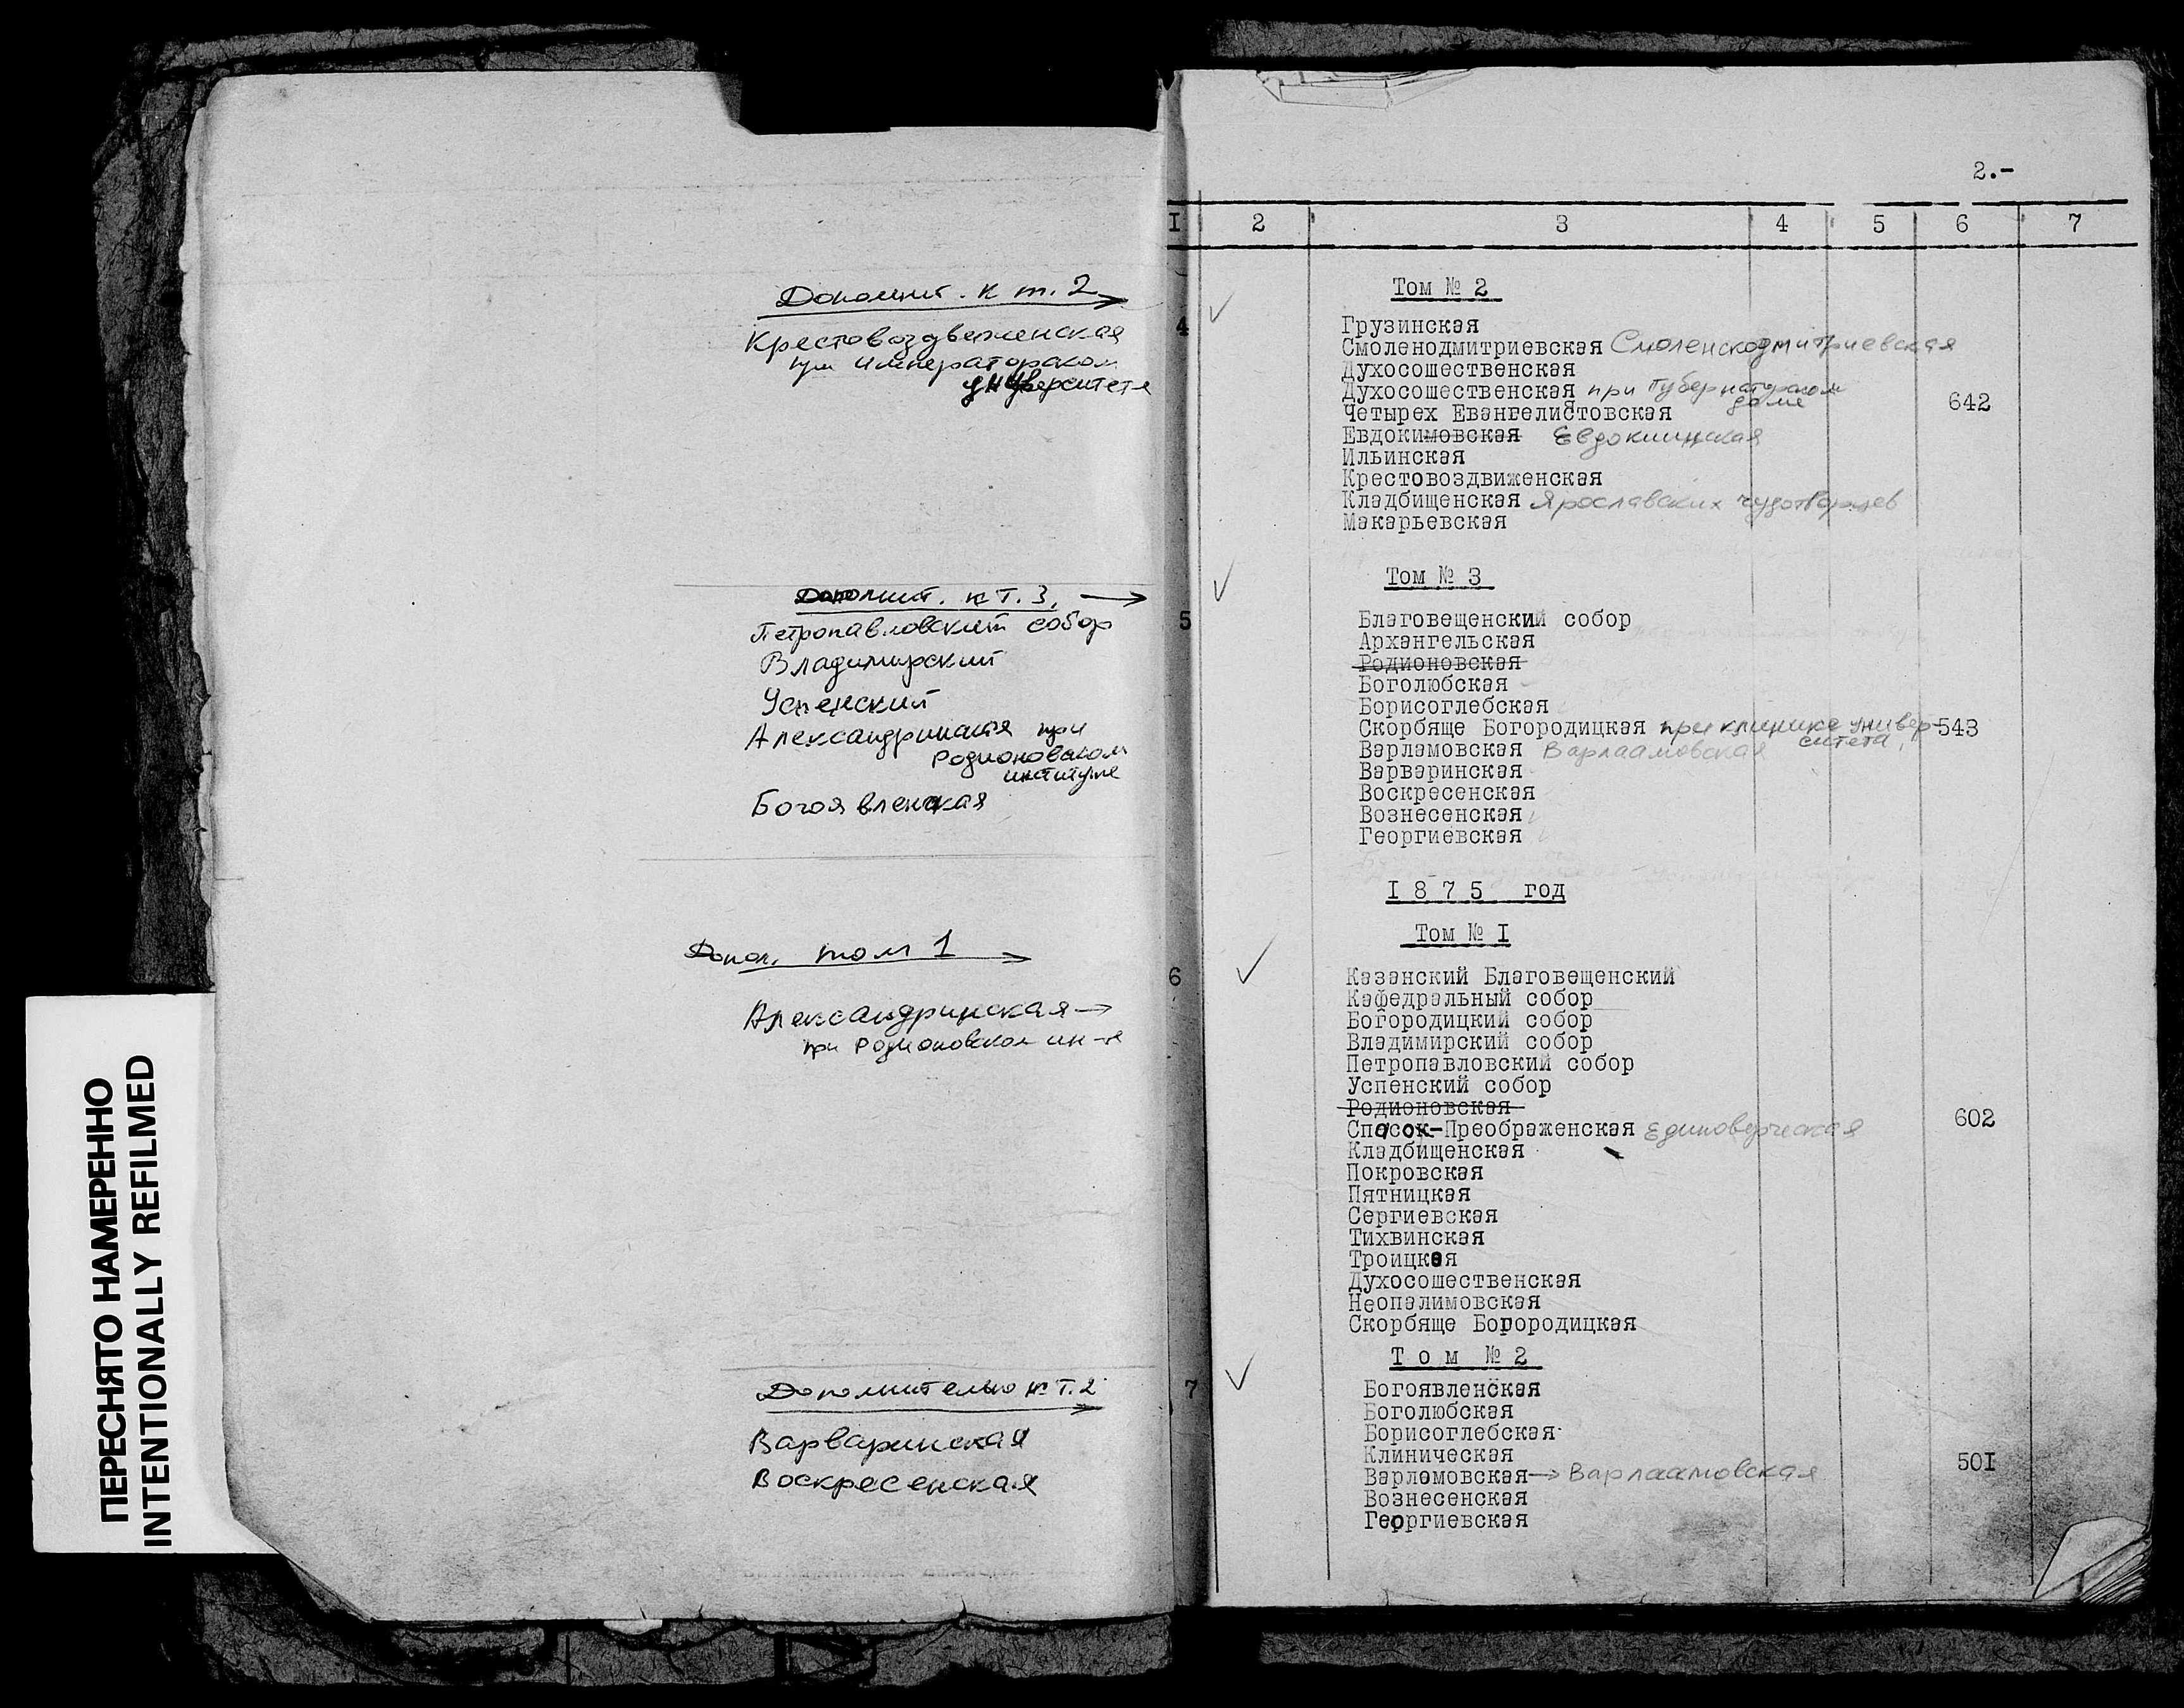 Дополнит. к т. 2
Крестовоздвиженская
при императорском
университете
Дополнит. к т. 3.
Петропавловский собор
Владимирский
Успенский
Александринская при
Родионовском
институте
Богоявленская
Допол. том 1
Александринская
при Родионовском ин-те
Дополнительно к т. 2
Варваринская
Воскресенская
ПЕРЕСНЯТО НАМЕРЕННО
INTENTIONALLY REFILMED
2.-
I 2 3 4 5 6 7
Том № 2
4
Грузинская
Смоленодмитриевская Смоленскодмитриевская
Духосошественская
Духосошественская при Губернаторском
доме
Четырех Евангелистовская 642
Евдокимовская Евдокиинская
Ильинская
Крестовоздвиженская
Кладбищенская Ярославских чудотворцев
Макарьевская
Том № 3
5 Благовещенский собор
Архангельская
Родионовская
Боголюбская
Борисоглебская
Скорбяще Богородицкая при клинике универ- 543
ситета,
Варламовская Варлаамовская
Варваринская
Воскресенская
Вознесенская
Георгиевская
I 8 7 5 год
Том № I
6 Казанский Благовещенский
Кафедральный собор
Богородицкий собор
Владимирский собор
Петропавловский собор
Успенский собор
Родионовская
602
Спасок-Преображенская Единоверческая
Кладбищенская
Покровская
Пятницкая
Сергиевская
Тихвинская
Троицкая
Духосошественская
Неопалимовская
Скорбяще Богородицкая
Т о м № 2
7 Богоявленская
Боголюбская
Борисоглебская
Клиническая
501
Варламовская Варлаамовская
Вознесенская
Георгиевская